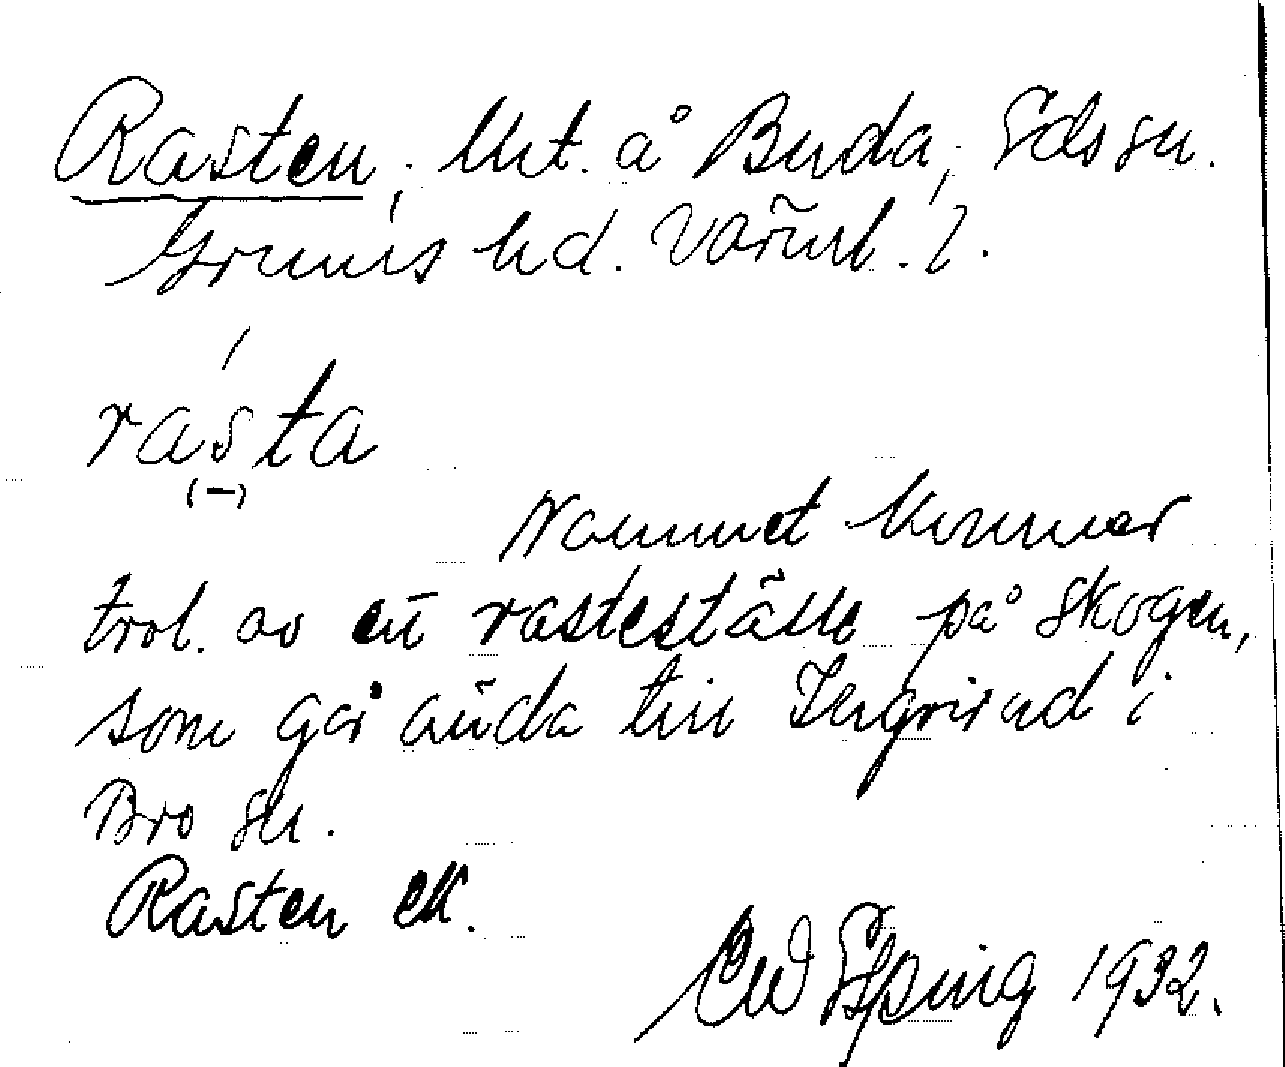 Rasten, lht. å Buda, Eds sn.
Grums hd. Värml. l.
rasta
(–)
Namnet kommer
trol. av ett rasteställe på skogen,
som går ända till Ingrirud i
Bro sn.
Rasten ek.
Esping 1932.